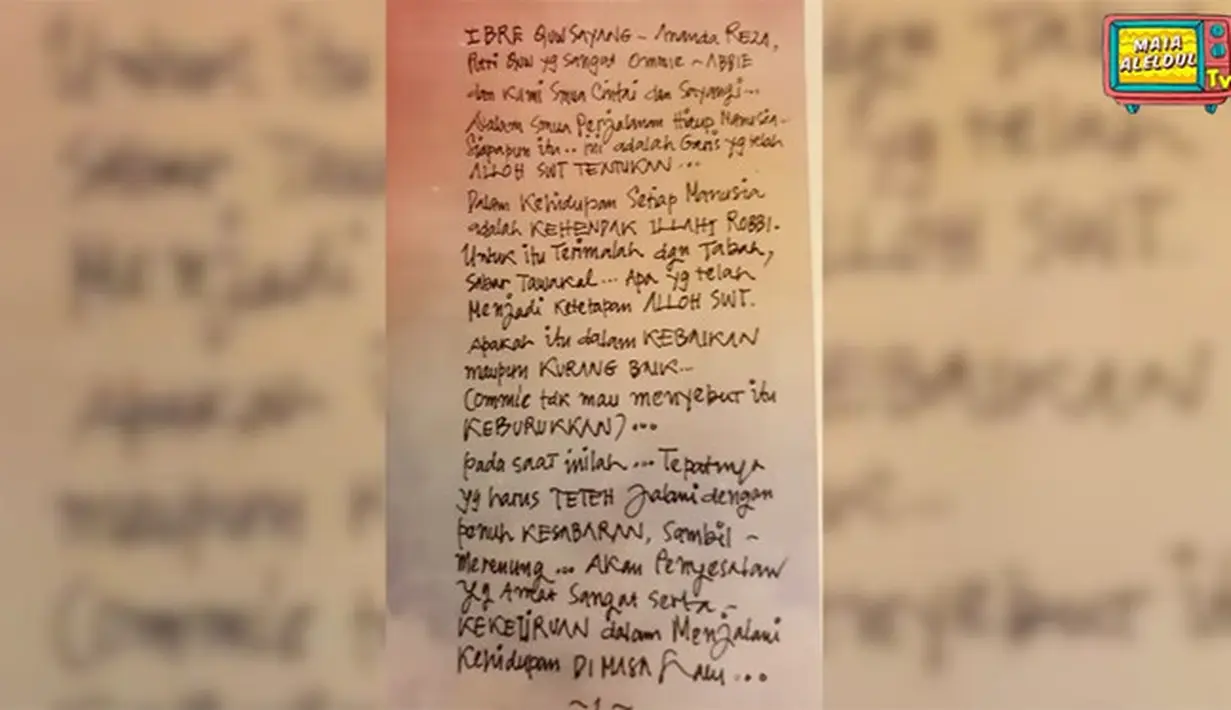 IBRE QUW SAYANG ~ Ananda REZA,
Putri Quw yg sangat Ommie ~ ABBIE
dan Kami Smua Cintai dan Sayangi...
Dalam Smua Perjalanan Hidup Manusia..
Siapapun itu.. ini adalah Garis yg telah
ALLOH SWT TENTUKAN...
Dalam Kehidupan Setiap Manusia
adalah KEHENDAK ILLAHI ROBBI.
Untuk itu Terimalah dgn Tabah,
Sabar Tawakal... Apa yg telah
Menjadi Ketetapan ALLOH SWT.
Apakah itu dalam KEBAIKAN
maupun KURANG BAIK...
(ommie tdk mau menyebut itu
KEBURUKKAN)...
pada saat inilah... Tepatnya
yg harus TETEH Jalani dengan
penuh KESABARAN, Sambil ~
Merenung... Akan Penyesalan
yg Amat Sangat serta ~
KEKELIRUAN dalam Menjalani
Kehidupan DI MASA Lalu...
~1~
MAIA
ALELDUL
TV